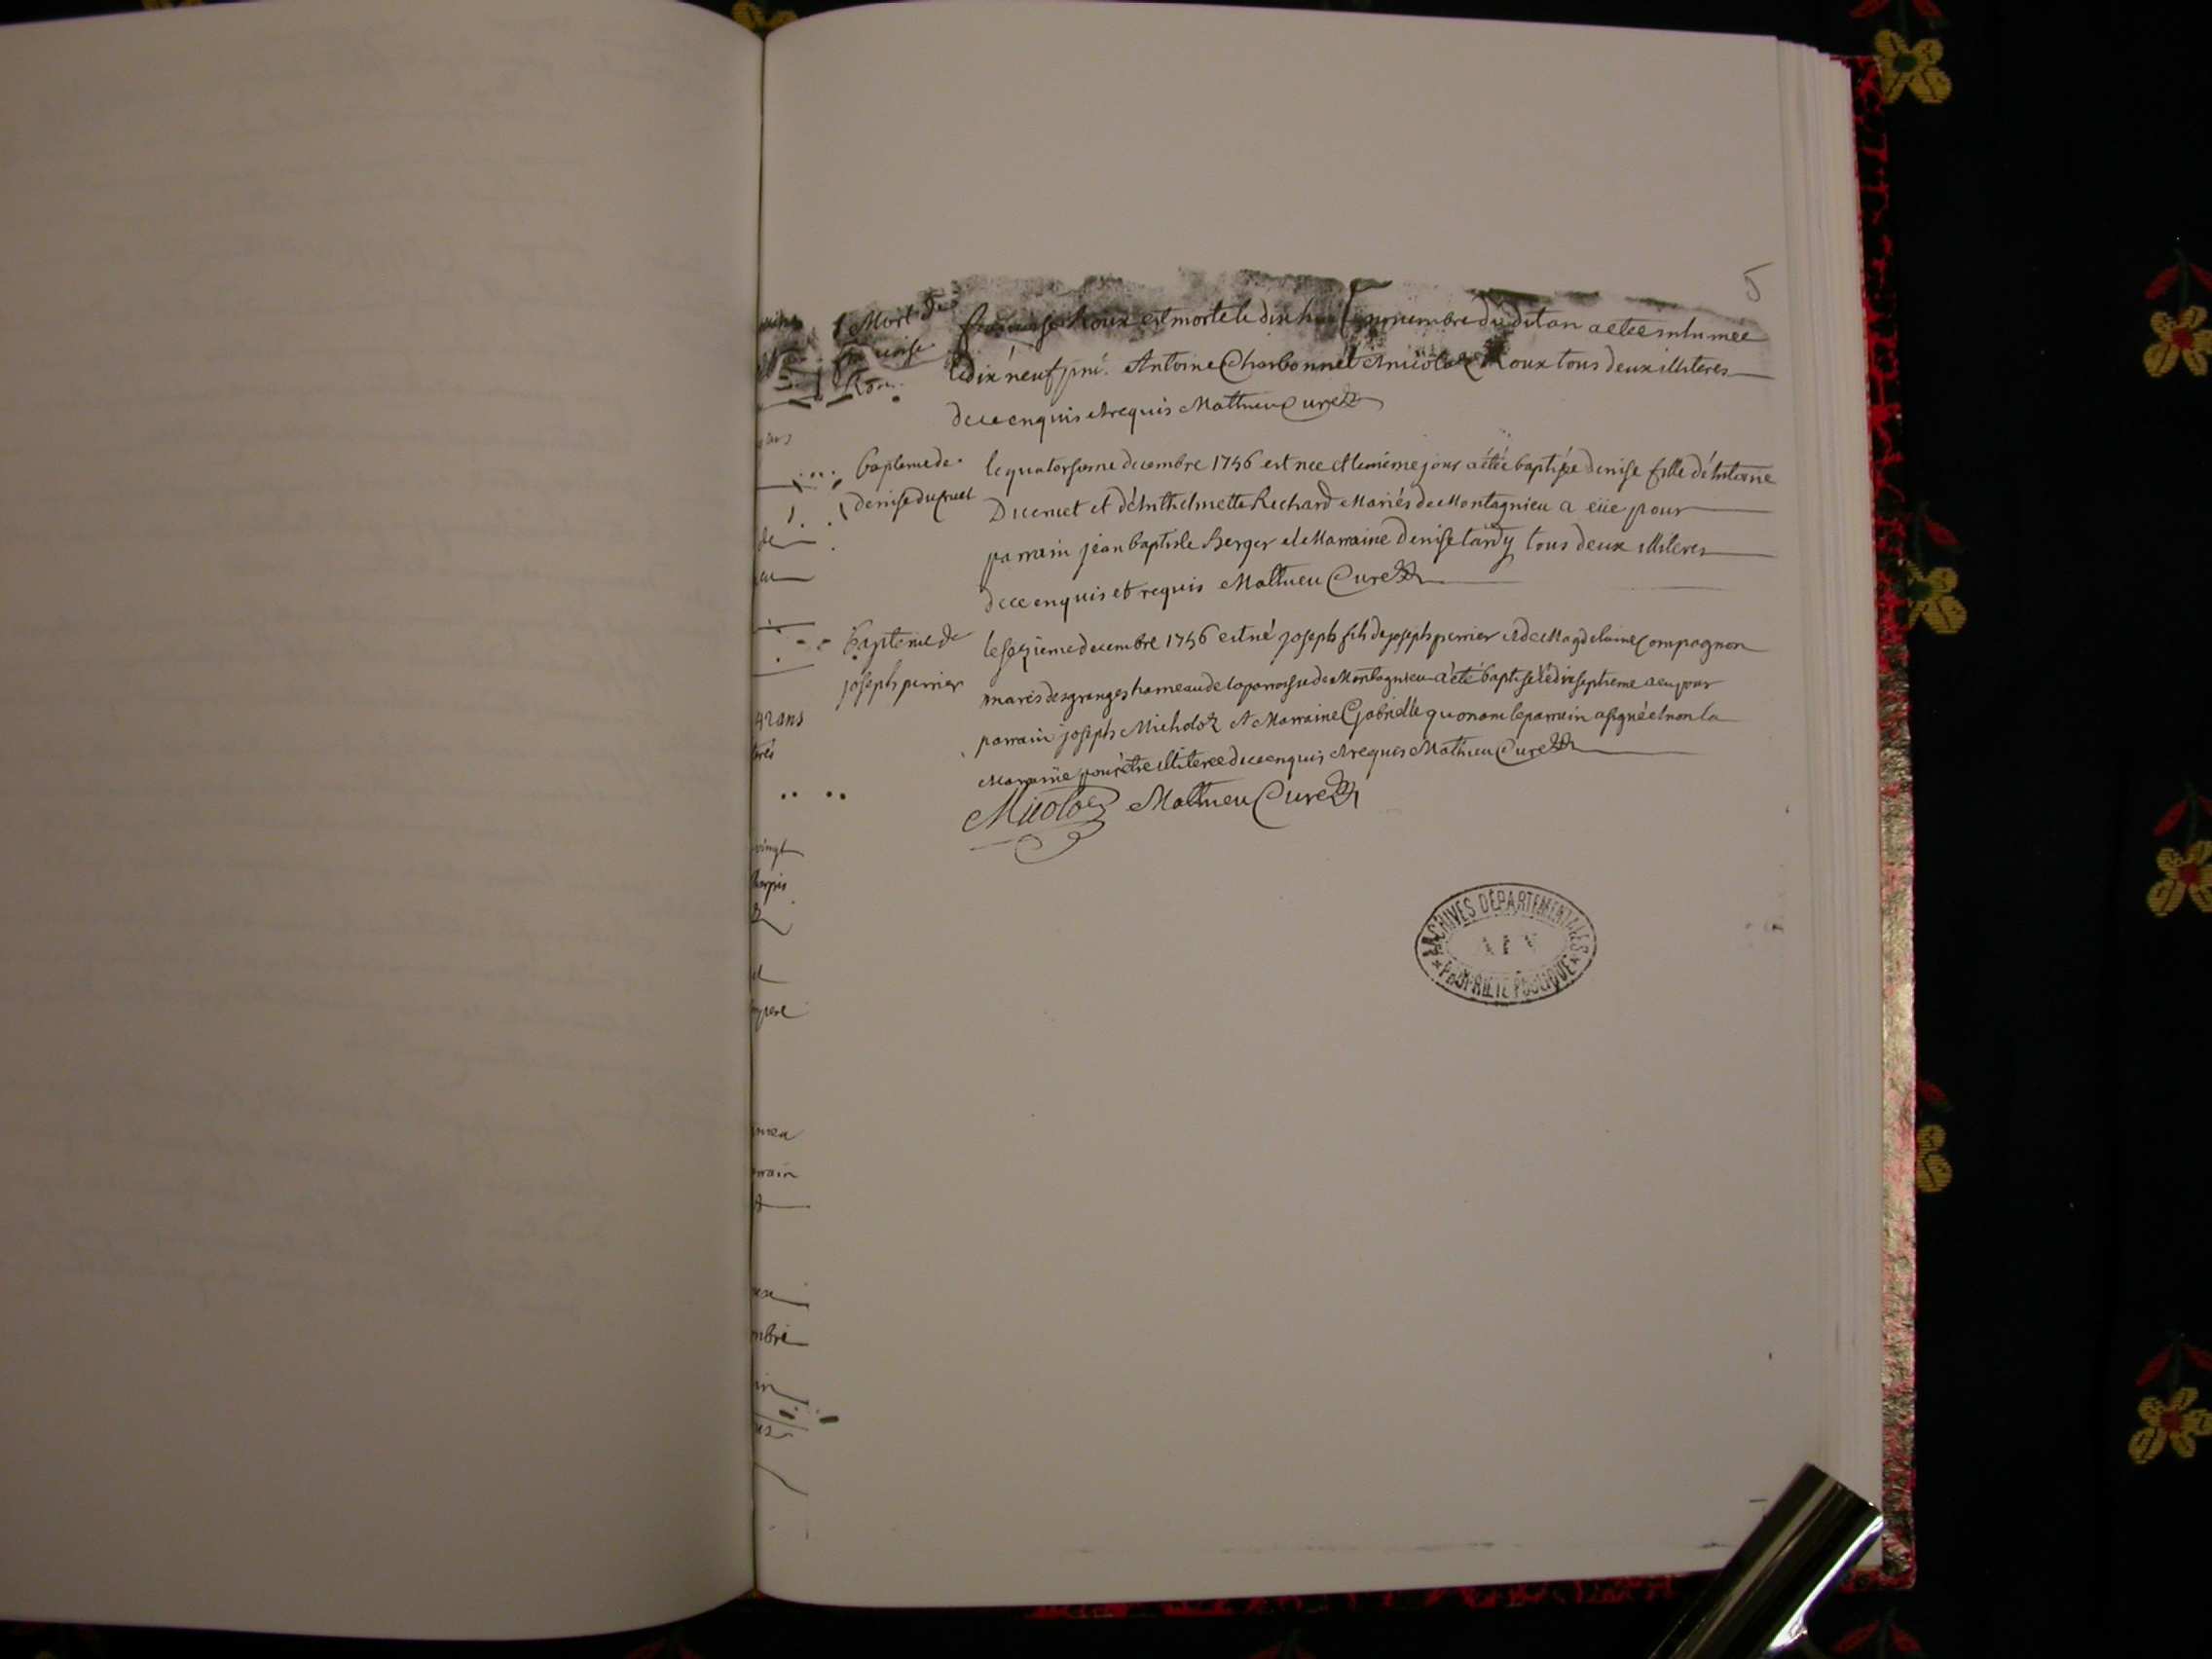 5
Mort de
françoise
Roux
françoise Roux est morte le dix huit novembre dudit an a eteé inhumeé
le dix neuf pnt. Antoine Charbonnel et nicolas Roux tous deux illiteres
de ce enquis et requis Mathieu Curé
bapteme de
denise ducruet
le quatorsieme decembre 1756 est neé et le méme jour a étéé baptiseé denise fille d'Antoine
Ducruet et d'Anthelmette Richard Mariés de Montagnieu a eüe pour
parrain jean baptiste Berger et Marraine denise tardy tous deux illiteres
de ce enquis et requis Mathieu Curé
Bapteme de
joseph perrier
le seizieme decembre 1756 est né joseph fils de joseph perrier et de Magdelaine Compagnon
mariés des granges hameau de la paroisse de Montagnieu a été baptisé le dix septieme a eu pour
parrain joseph Micholoz et Marraine Gabrielle quonam le parrain a signé et non la
Marraine pour étre illitereé de ce enquis et requis Mathieu Curé
Micoloz Mathieu Curé
pars
de
42 ans
vingt
et
pere
rrain
mbre
ARCHIVES DÉPARTEMENTALES
AIN
PROPRIÉTÉ PUBLIQUE